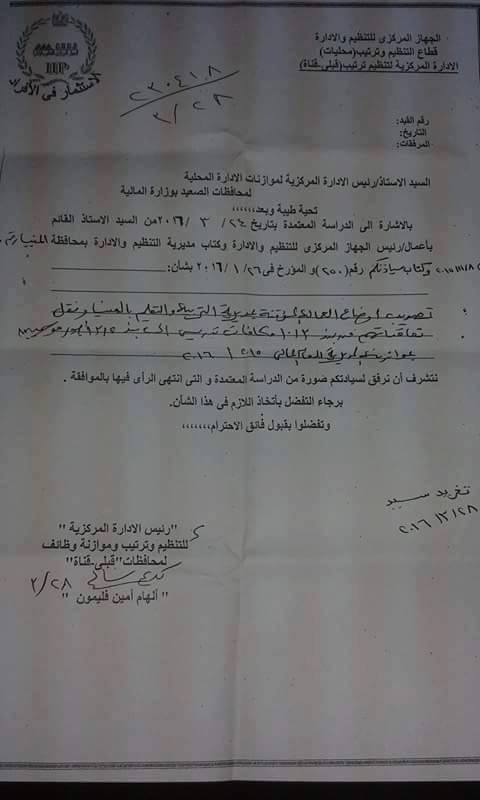 الجهاز المركزى للتنظيم والادارة
قطاع التنظيم وترتيب (محليات)
الادارة المركزية لتنظيم ترتيب (قبلى-قناة)
استثمار فى الأفراد
٢٣٠٤١٨
٣/٢٨
رقم القيد:
التاريخ:
المرفقات:
السيد الاستاذ/رئيس الادارة المركزية لموازنات الادارة المحلية
لمحافظات الصعيد بوزارة المالية
تحية طيبة وبعد،،،،،،
بالاشارة الى الدراسة المعتمدة بتاريخ ٢٤/ ٣ /٢٠١٦من السيد الاستاذ القائم
بأعمال/رئيس الجهاز المركزى للتنظيم والادارة وكتاب مديرية التنظيم والادارة بمحافظة المنيا
وكتاب سيادتكم رقم (٢٥٠) و المؤرخ فى ٢٠١٦/١/٢٦ بشأن:
تصويب اوضاع العمالة المؤقتة بمديرية التربية والتعليم بالمنيا ونقل
مكافآت تدريس
٢٠١٦/٢٠١٥
نتشرف أن نرفق لسيادتكم صورة من الدراسة المعتمدة و التى انتهى الرأى فيها بالموافقة .
برجاء التفضل بأتخاذ اللازم فى هذا الشأن.
وتفضلوا بقبول فائق الاحترام،،،،،،،
تغريد سيد
٢٠١٦/٣/٢٨
"رئيس الادارة المركزية "
للتنظيم وترتيب وموازنة وظائف
لمحافظات"قبلى-قناة"
٣/٢٨
" ألهام أمين فليمون "